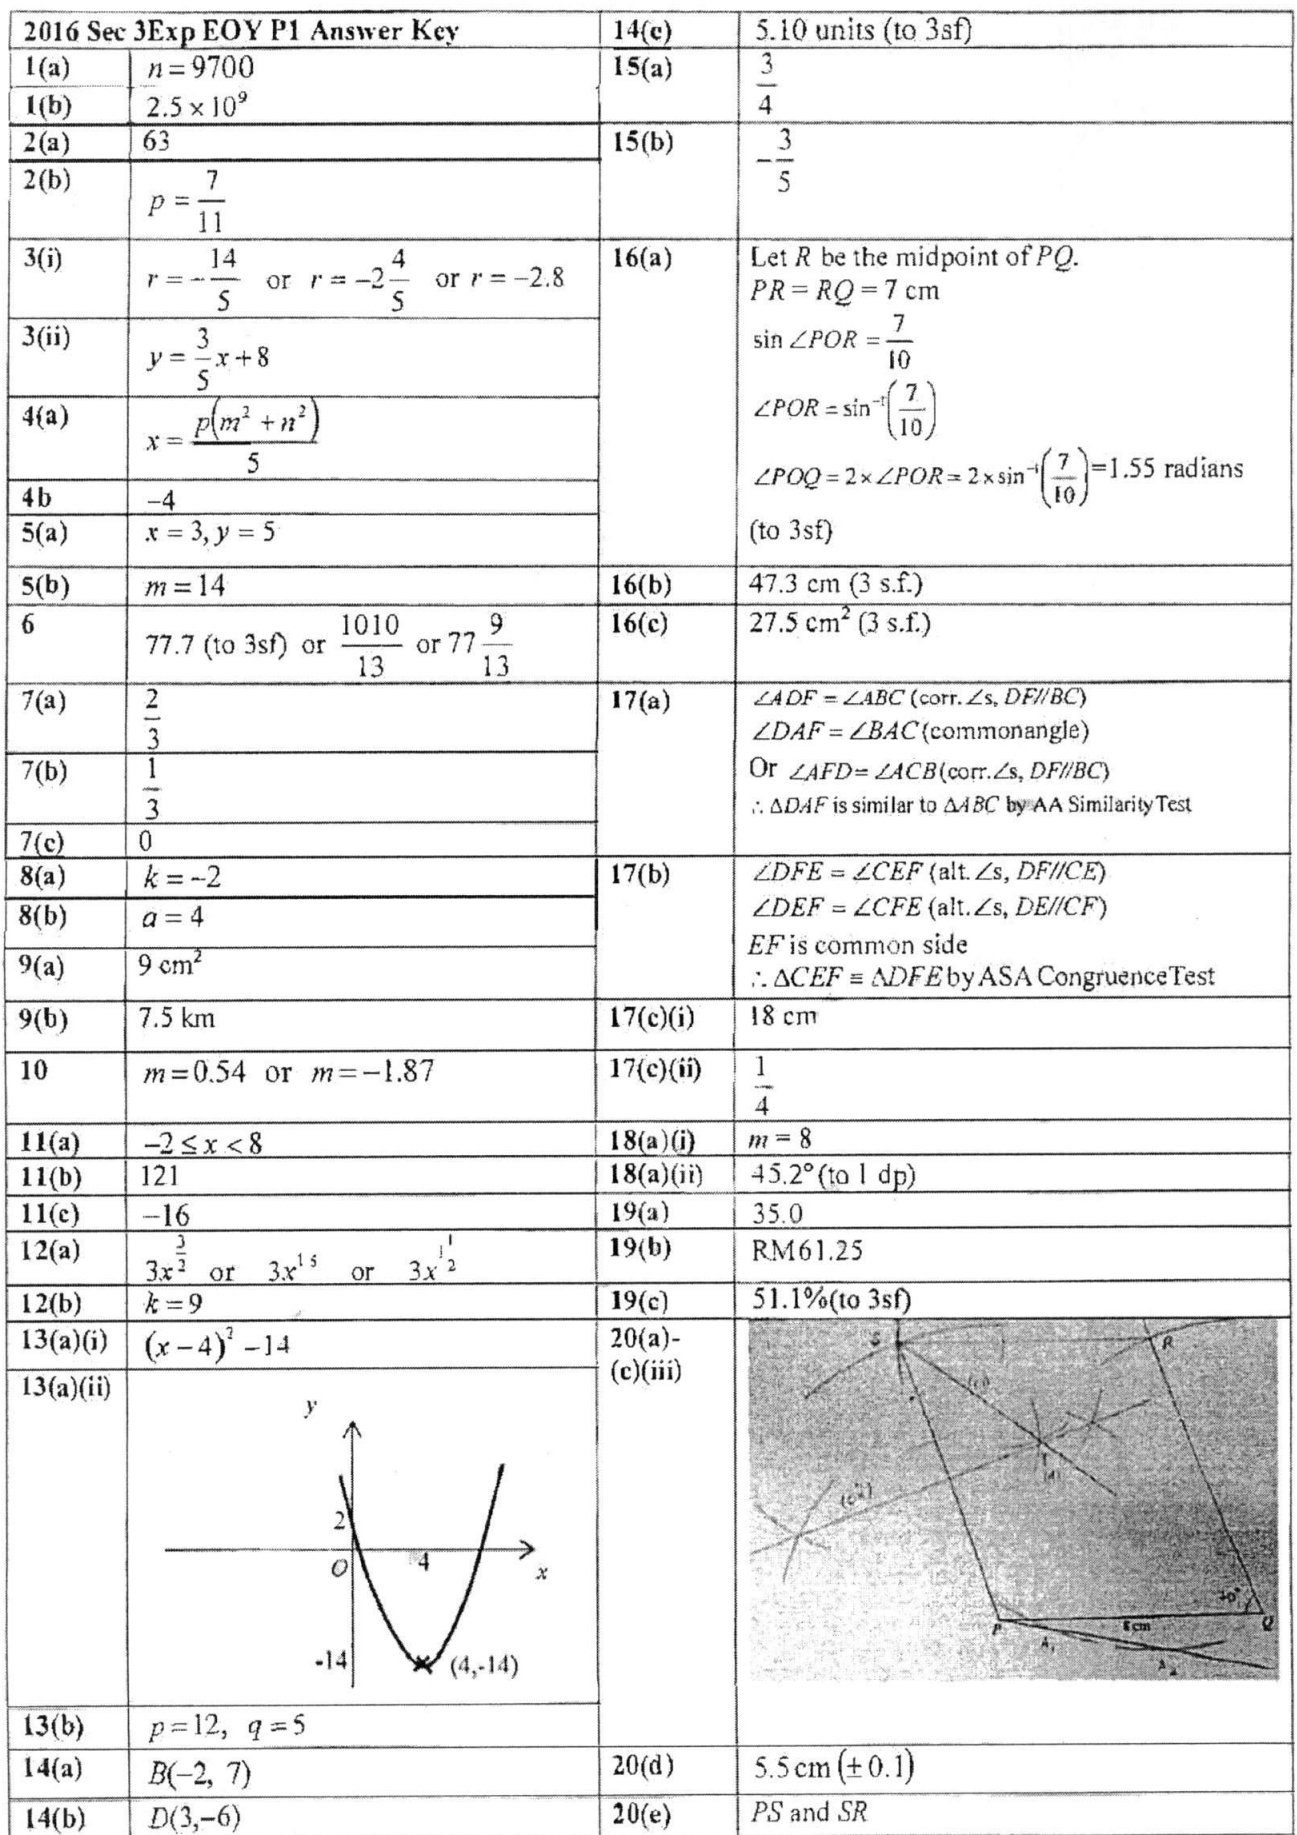 2016 Sec 3Exp EOY P1 Answer Key
1(a) n = 9700
1(b) 2.5 × 10⁹
2(a) 63
2(b) p = 7/11
3(i) r = -14/5 or r = -2 4/5 or r = -2.8
3(ii) y = 3/5 x + 8
4(a) x = p(m² + n²)/5
4b -4
5(a) x = 3, y = 5
5(b) m = 14
6 77.7 (to 3sf) or 1010/13 or 77 9/13
7(a) 2/3
7(b) 1/3
7(c) 0
8(a) k = -2
8(b) a = 4
9(a) 9 cm²
9(b) 7.5 km
10 m = 0.54 or m = -1.87
11(a) -2 ≤ x < 8
11(b) 121
11(c) -16
12(a) 3x^(3/2) or 3x^1.5 or 3x^(1 1/2)
12(b) k = 9
13(a)(i) (x - 4)² - 14
13(a)(ii)
y
2
O
4
x
-14
(4,-14)
13(b) p = 12, q = 5
14(a) B(-2, 7)
14(b) D(3,-6)
14(c) 5.10 units (to 3sf)
15(a) 3/4
15(b) -3/5
16(a) Let R be the midpoint of PQ.
PR = RQ = 7 cm
sin ∠POR = 7/10
∠POR = sin⁻¹(7/10)
∠POQ = 2 × ∠POR = 2 × sin⁻¹(7/10) = 1.55 radians
(to 3sf)
16(b) 47.3 cm (3 s.f.)
16(c) 27.5 cm² (3 s.f.)
17(a) ∠ADF = ∠ABC (corr. ∠s, DF//BC)
∠DAF = ∠BAC (commonangle)
Or ∠AFD = ∠ACB (corr. ∠s, DF//BC)
∴ ΔDAF is similar to ΔABC by AA Similarity Test
17(b) ∠DFE = ∠CEF (alt. ∠s, DF//CE)
∠DEF = ∠CFE (alt. ∠s, DE//CF)
EF is common side
∴ ΔCEF ≡ ΔDFE by ASA Congruence Test
17(c)(i) 18 cm
17(c)(ii) 1/4
18(a)(i) m = 8
18(a)(ii) 45.2° (to 1 dp)
19(a) 35.0
19(b) RM61.25
19(c) 51.1% (to 3sf)
20(a)-
(c)(iii)
S
R
P
8 cm
Q
20(d) 5.5 cm (± 0.1)
20(e) PS and SR